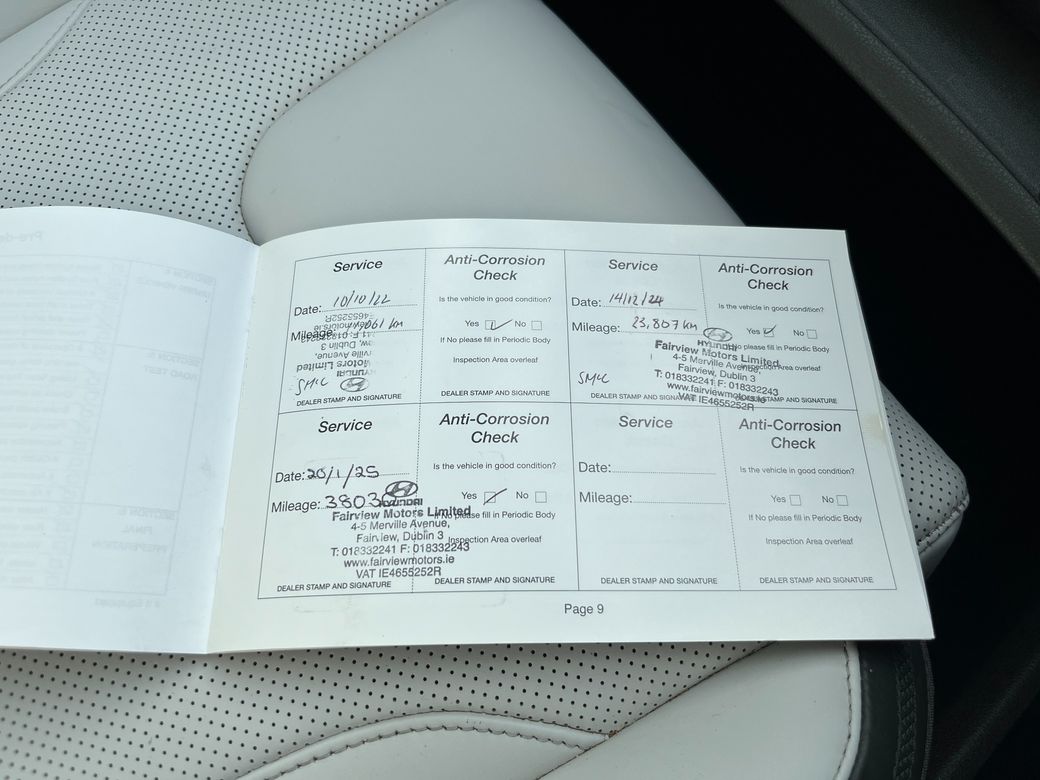 Service
Anti-Corrosion
Check
Date: 10/10/22
Is the vehicle in good condition?
Mileage: 061 km
Yes No
If No please fill in Periodic Body
Inspection Area overleaf
SMcC
HYUNDAI
DEALER STAMP AND SIGNATURE
DEALER STAMP AND SIGNATURE
Service
Anti-Corrosion
Check
Date: 14/12/24
Is the vehicle in good condition?
Mileage: 23,807 km
Yes No
HYUNDAI
If No please fill in Periodic Body
Inspection Area overleaf
Fairview Motors Limited
4-5 Merville Avenue,
Fairview, Dublin 3
T: 018332241 F: 018332243
www.fairviewmotors.ie
VAT IE4655252R
SMcC
DEALER STAMP AND SIGNATURE
DEALER STAMP AND SIGNATURE
Service
Anti-Corrosion
Check
Date: 20/1/25
Is the vehicle in good condition?
Mileage: 3803
Yes No
HYUNDAI
If No please fill in Periodic Body
Inspection Area overleaf
Fairview Motors Limited
4-5 Merville Avenue,
Fairview, Dublin 3
T: 018332241 F: 018332243
www.fairviewmotors.ie
VAT IE4655252R
DEALER STAMP AND SIGNATURE
DEALER STAMP AND SIGNATURE
Service
Anti-Corrosion
Check
Date:
Is the vehicle in good condition?
Mileage:
Yes No
If No please fill in Periodic Body
Inspection Area overleaf
DEALER STAMP AND SIGNATURE
DEALER STAMP AND SIGNATURE
Page 9